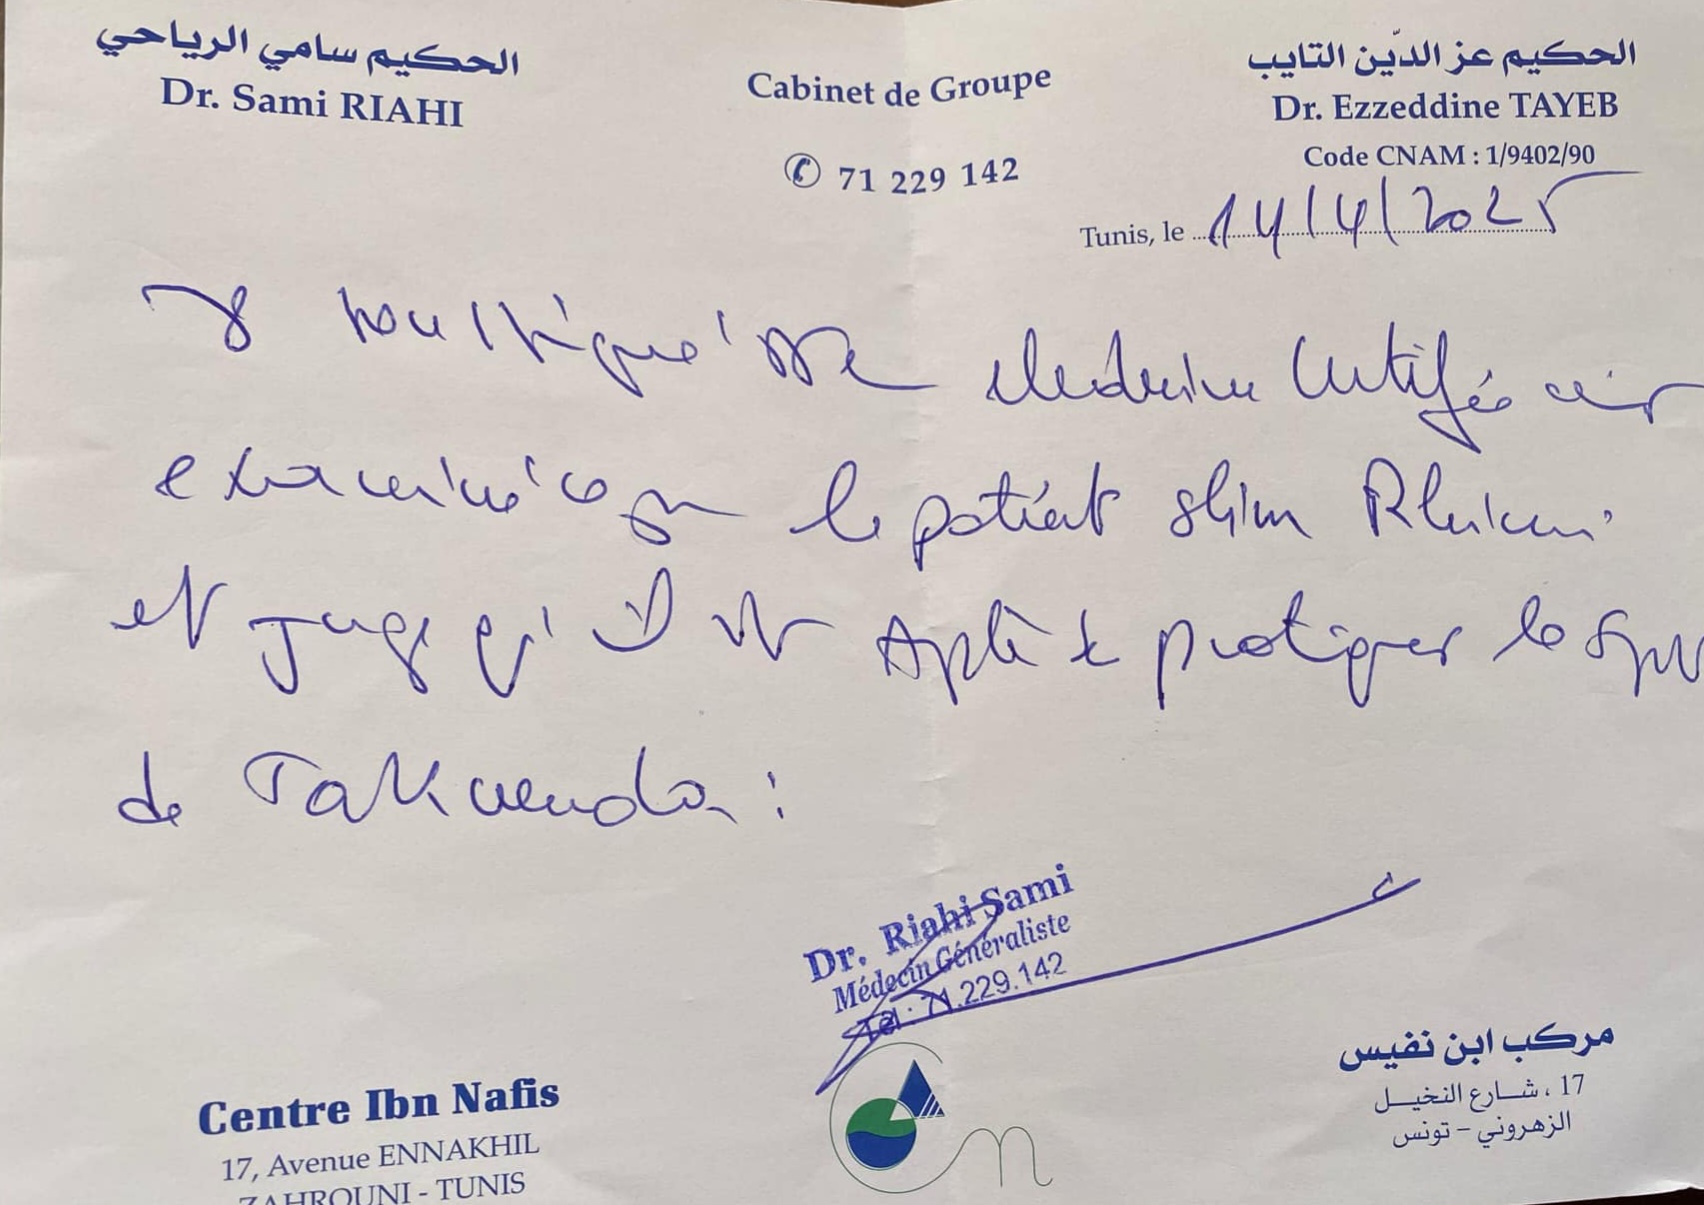 الحكيم سامي الرياحي
Dr. Sami RIAHI
Cabinet de Groupe
71 229 142
الحكيم عز الدّين التايب
Dr. Ezzeddine TAYEB
Code CNAM : 1/9402/90
Tunis, le 14/4/2025
Je soussigné Dr Medecin Certifie avoir
examiné ce jour le patient Slim
et juge qu'il est Apte à pratiquer le Sport
de Takwendo :
Dr. Riahi Sami
Médecin Généraliste
Tél : 71.229.142
Centre Ibn Nafis
17, Avenue ENNAKHIL
ZAHROUNI - TUNIS
مركب ابن نفيس
17 ، شارع النخيل
الزهروني - تونس